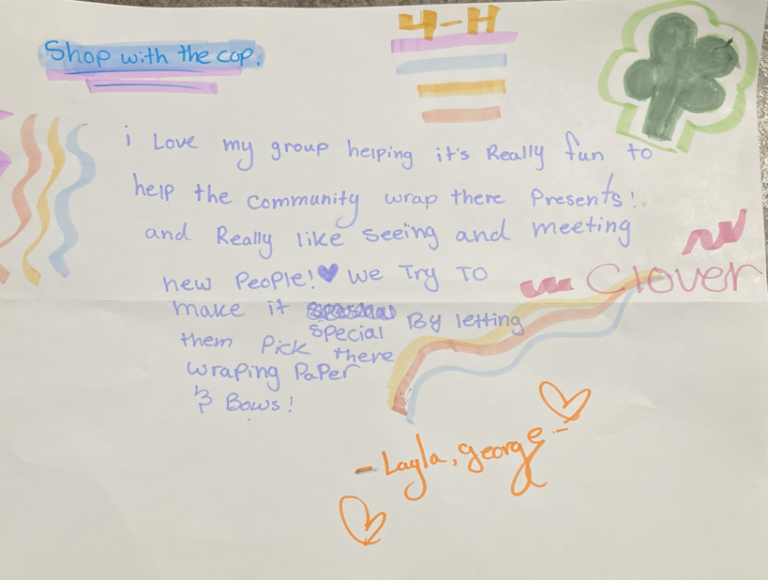 4-H
Shop with the cop.
i Love my group helping it's Really fun to
help the community wrap there Presents!
and Really like seeing and meeting
new People! We Try To
make it
special By letting
them Pick there
wraping PaPer
& Bows!
Clover
- Layla, george -